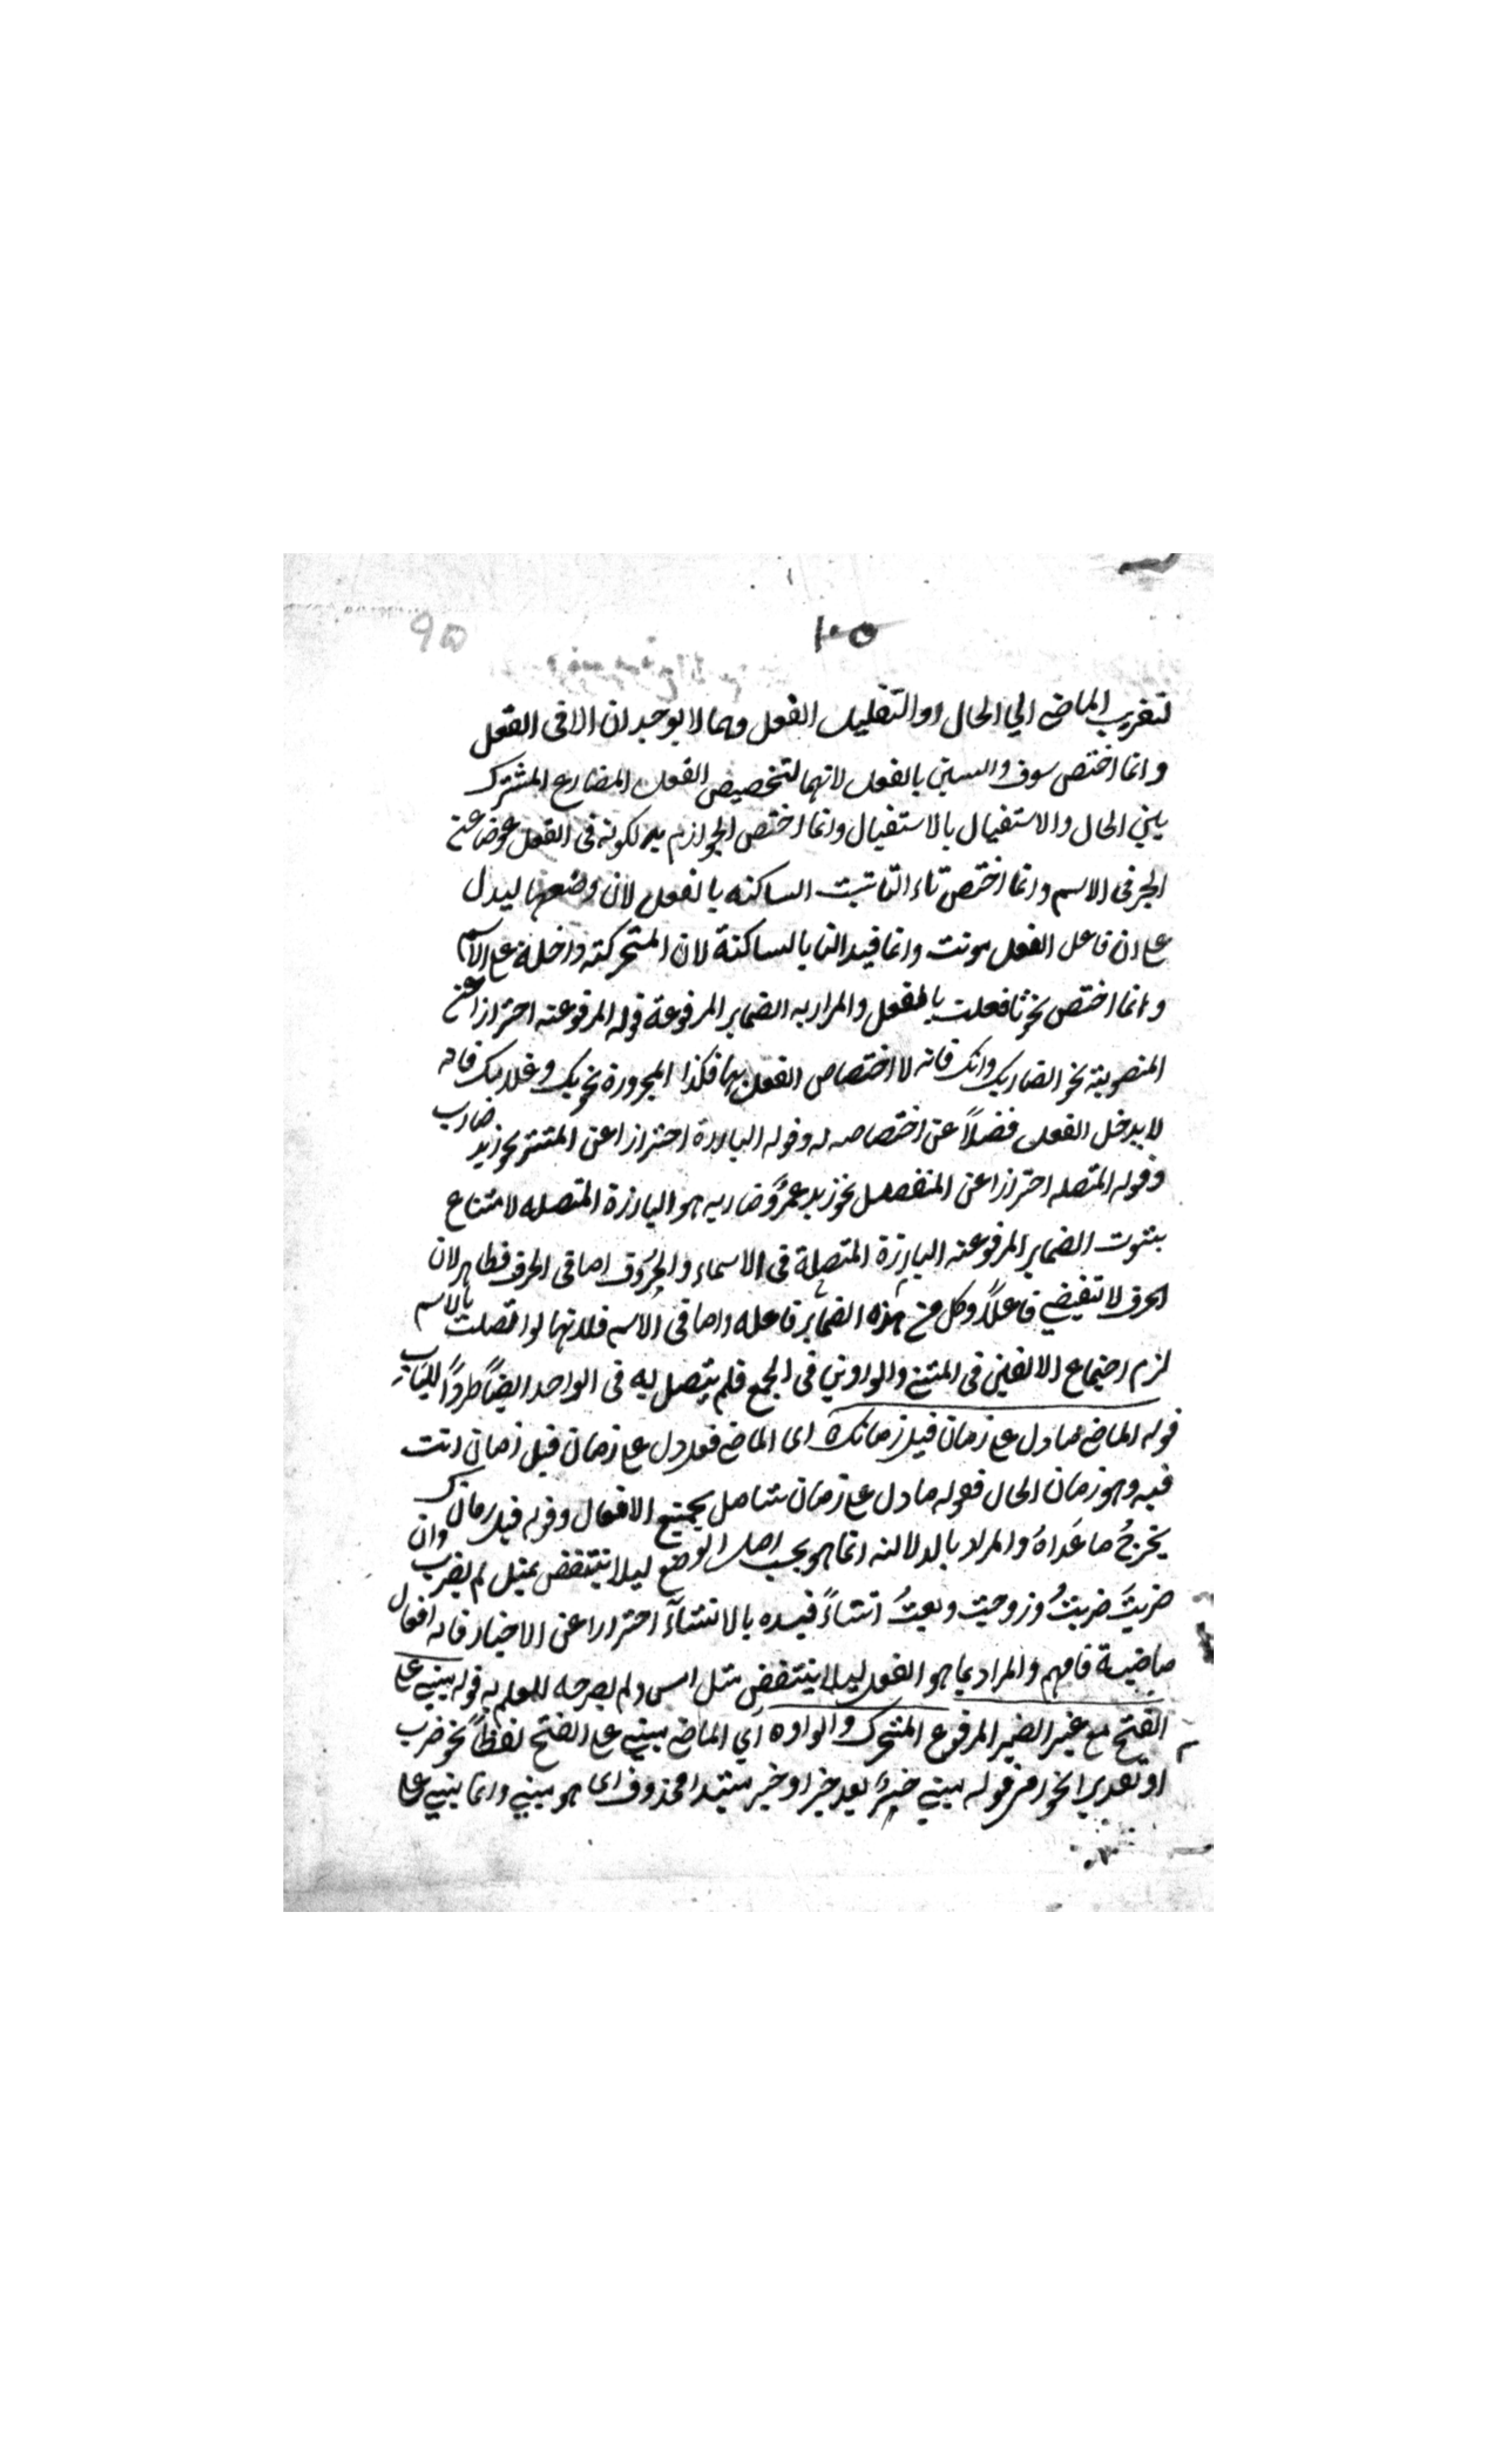 ٩٥
١٠٥
لتقريب الماضى الي الحال او التقليل الفعل وهما لا يوجدان الا فى الفعل
وانما اختص سوف والسين بالفعل لانهما لتخصيص الفعل المضارع المشترك
بين الحال والاستقبال بالاستقبال وانما اختص الجوازم به لكونه فى الفعل عوضا عن
الجر فى الاسم وانما اختص تاء التانيث الساكنه بالفعل لان وضعها ليدل
على ان فاعل الفعل مونث وانما قيد التا بالساكنة لان المتحركة داخلة على الاسم
وانما اختص نحو تا فعلت بالفعل والمراد به الضماير المرفوعة قوله المرفوعة احترازا عن
المنصوبة نحو الضاربك وانك فانه لا اختصاص الفعل بها فكذا المجرورة نحو بك وغلامك فانه
لا يدخل الفعل فضلاً عن اختصاصه له وقوله البارزة احترازا عن المستتر نحو زيد ضارب
وقوله المتصله احترازا عن المنفصل نحو زيد عمرو ضاربه هو البارزة المتصله لامتناع
ثبوت الضماير المرفوعة البارزة المتصلة فى الاسماء والحروف اما فى الحرف فظاهر لان
الحرف لا تقتضي فاعلاً وكل من هذه الضماير فاعله واما فى الاسم فلانها لو اتصلت بالاسم
لزم اجتماع الالفين فى المثنى والواوين فى الجمع فلم يتصل به فى الواحد ايضاً طرداً للباب
قوله الماضى ما دل على زمان قبل زمانك ه اى الماضى فعل دل على زمان قبل زمان انت
فيه وهو زمان الحال فقوله ما دل على زمان شامل بجميع الافعال وقوله قبل زمانك
يخرجُ ما عَداهُ والمراد بالدلالة انما هو بحسب اصل الوضع ليلا ينتقض بمثل لم يضرب وان
ضربتَ ضربتُ وزوجت وبعتُ انشاءً قيده بالانشآء احترازا عن الاخبار فانه افعال
ماضية فافهم والمراد بما هو الفعل ليلا ينتقض مثل امس ولم يصرحه للعلم به قوله مبنى على
الفتح مع غير الضمير المرفوع المتحرك والواو ه اي الماضى مبنى على الفتح لفظاً نحو ضرب
او تقديرا نحو رمى قوله مبنى خبرٌ بعد خبر او خبر مبتدا محذوف اى هو مبنى وانما بنى على